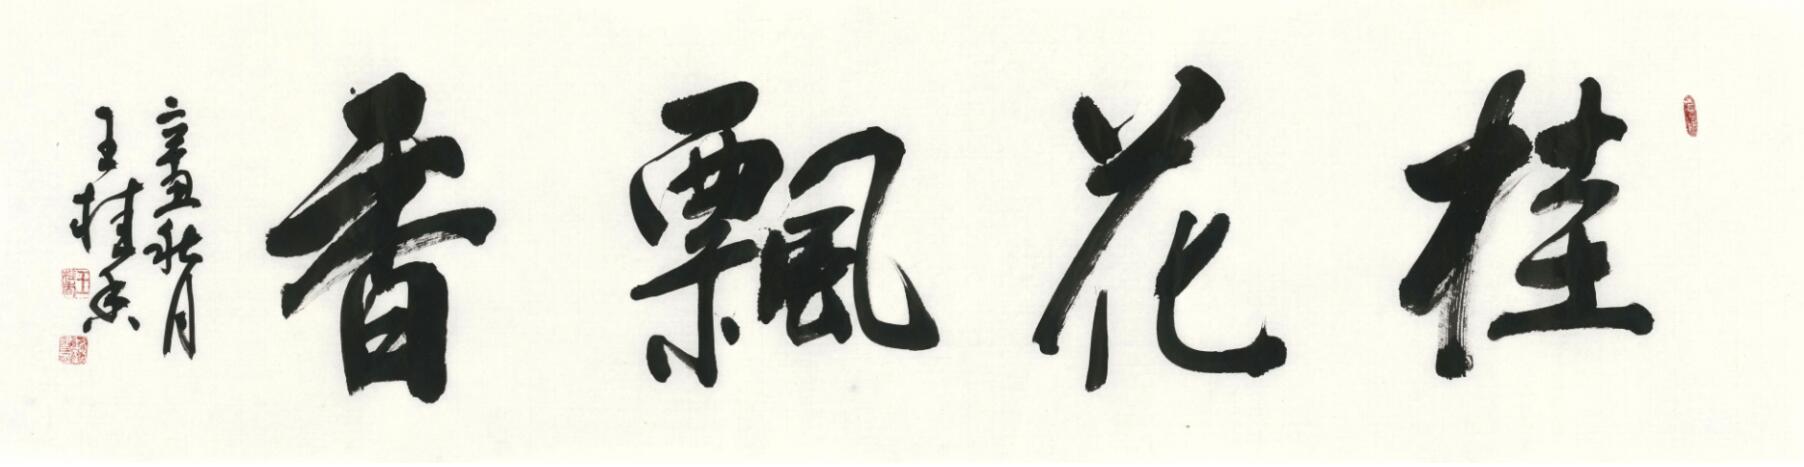 桂花飄香
辛丑秋月
王桂香